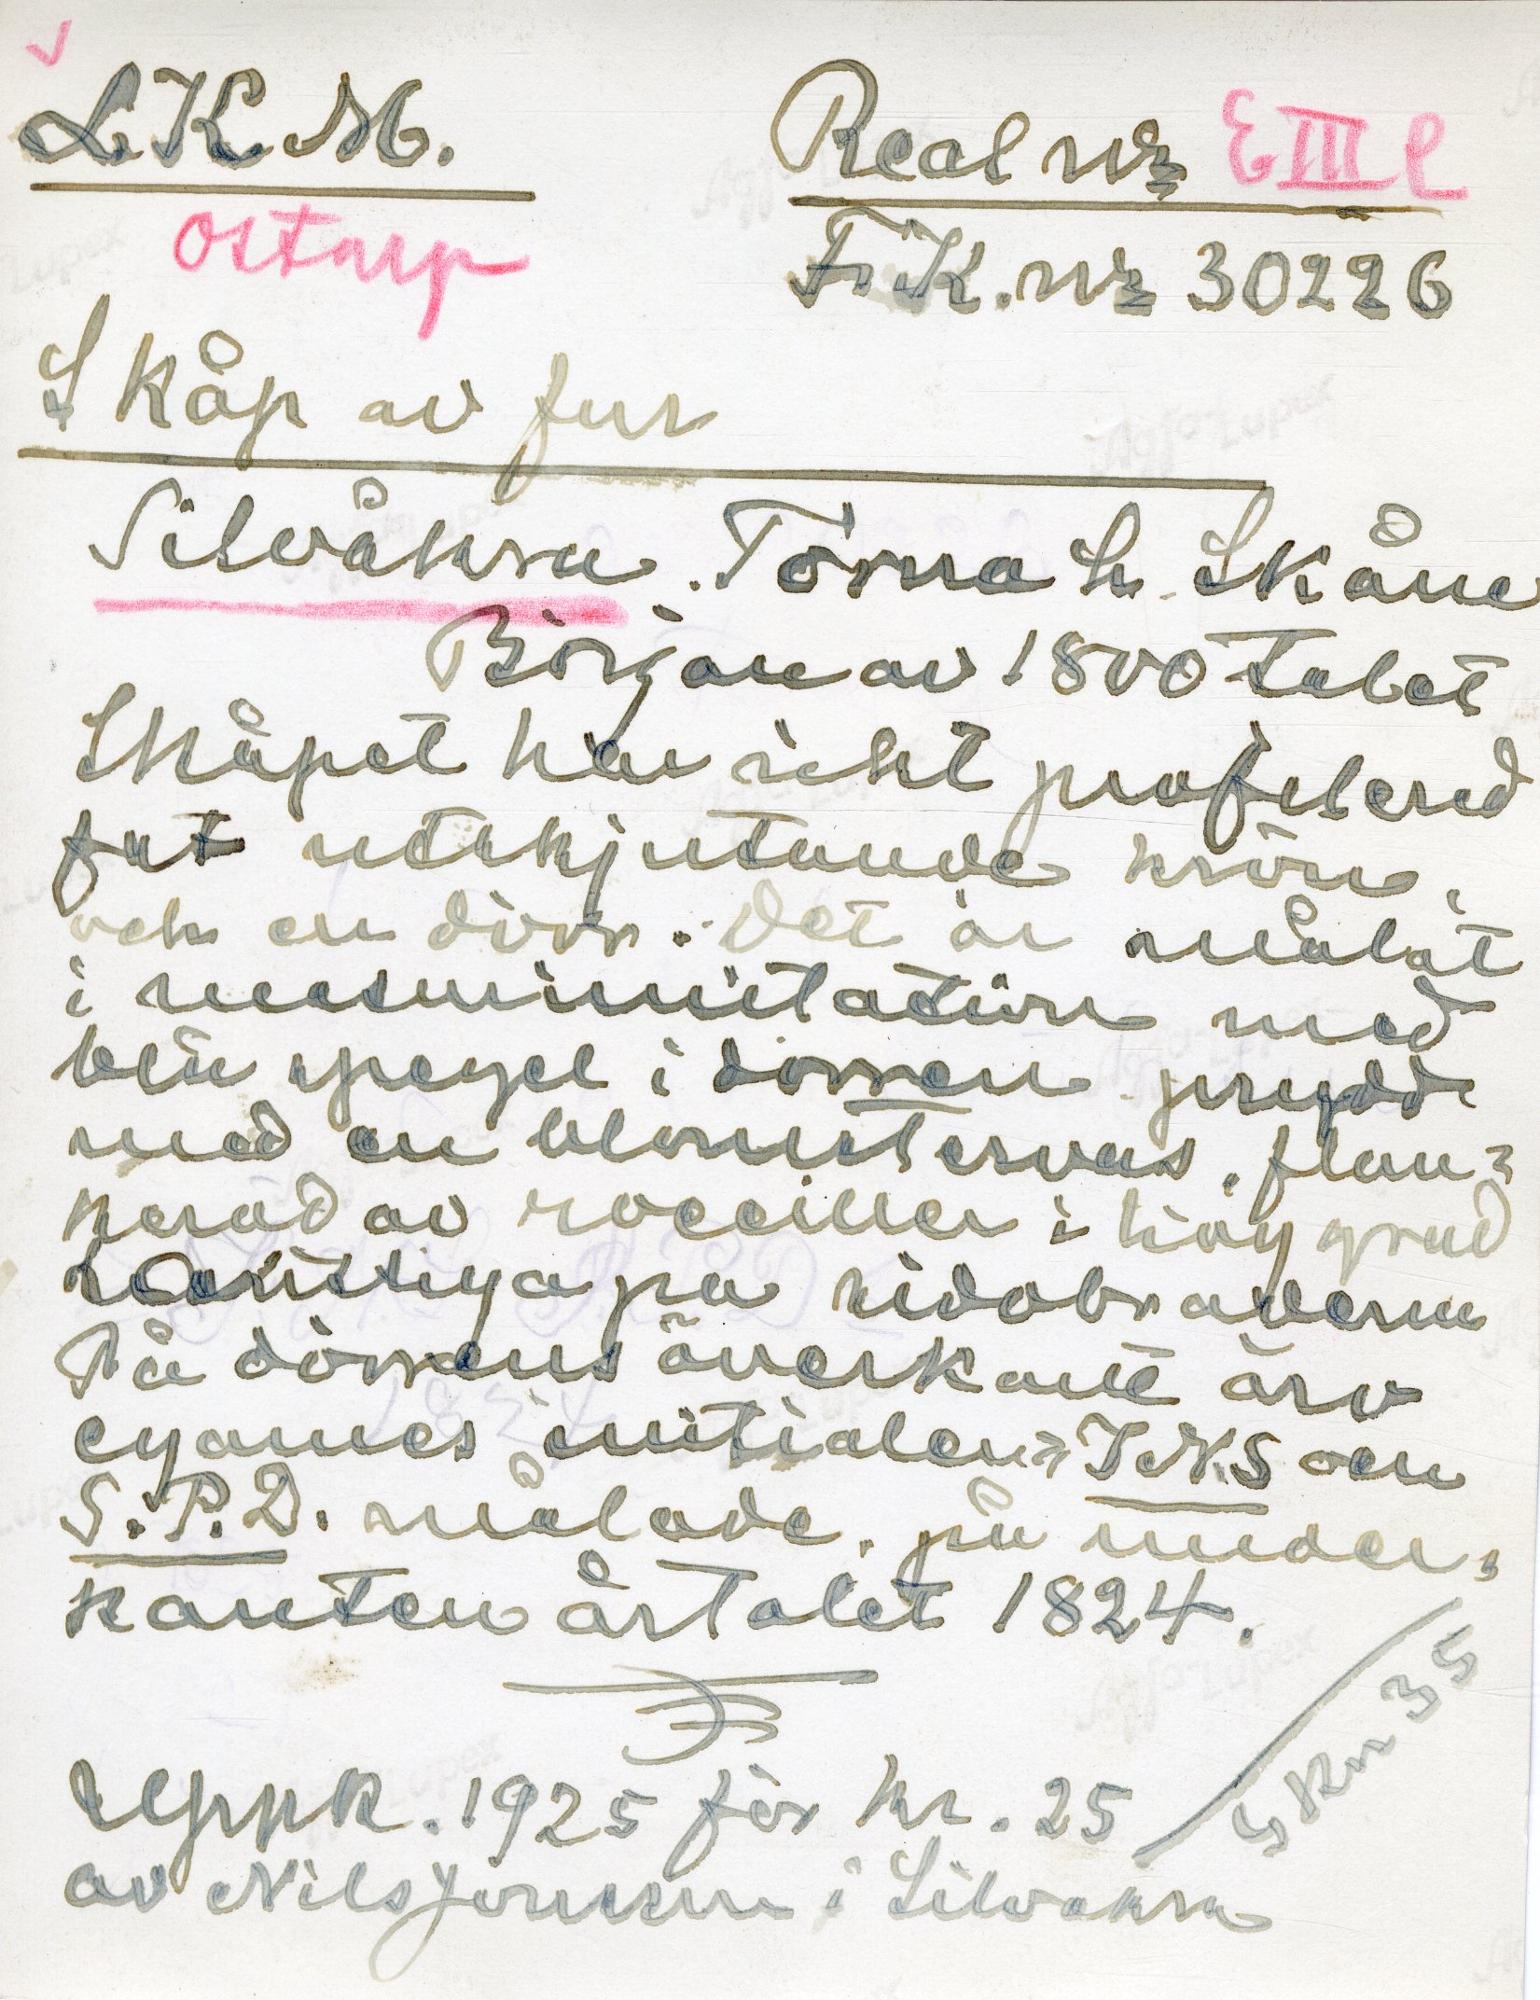 L.K.M. Real nr E III l
Ostarp F.K. nr 30226
Skåp av fur
Silvåkra. Torna h. Skåne
Början av 1800 talet
Skåpet har rikt profilerad
fat utskjutande krön,
och en dörr. Det är målat
i masurimitation med
blå spegel i dörren prydd
med en blomstervas, flan=
kerad av rocailler i hög grad
konstiga på sidobraderna
På dörrens överkant äro
egarnes initialer= I.N.S och
S.P.D. målade, på under=
kanten årtalet 1824.
Uppk. 1925 för kr. 25
av Nils Jönsson i Silvåkra